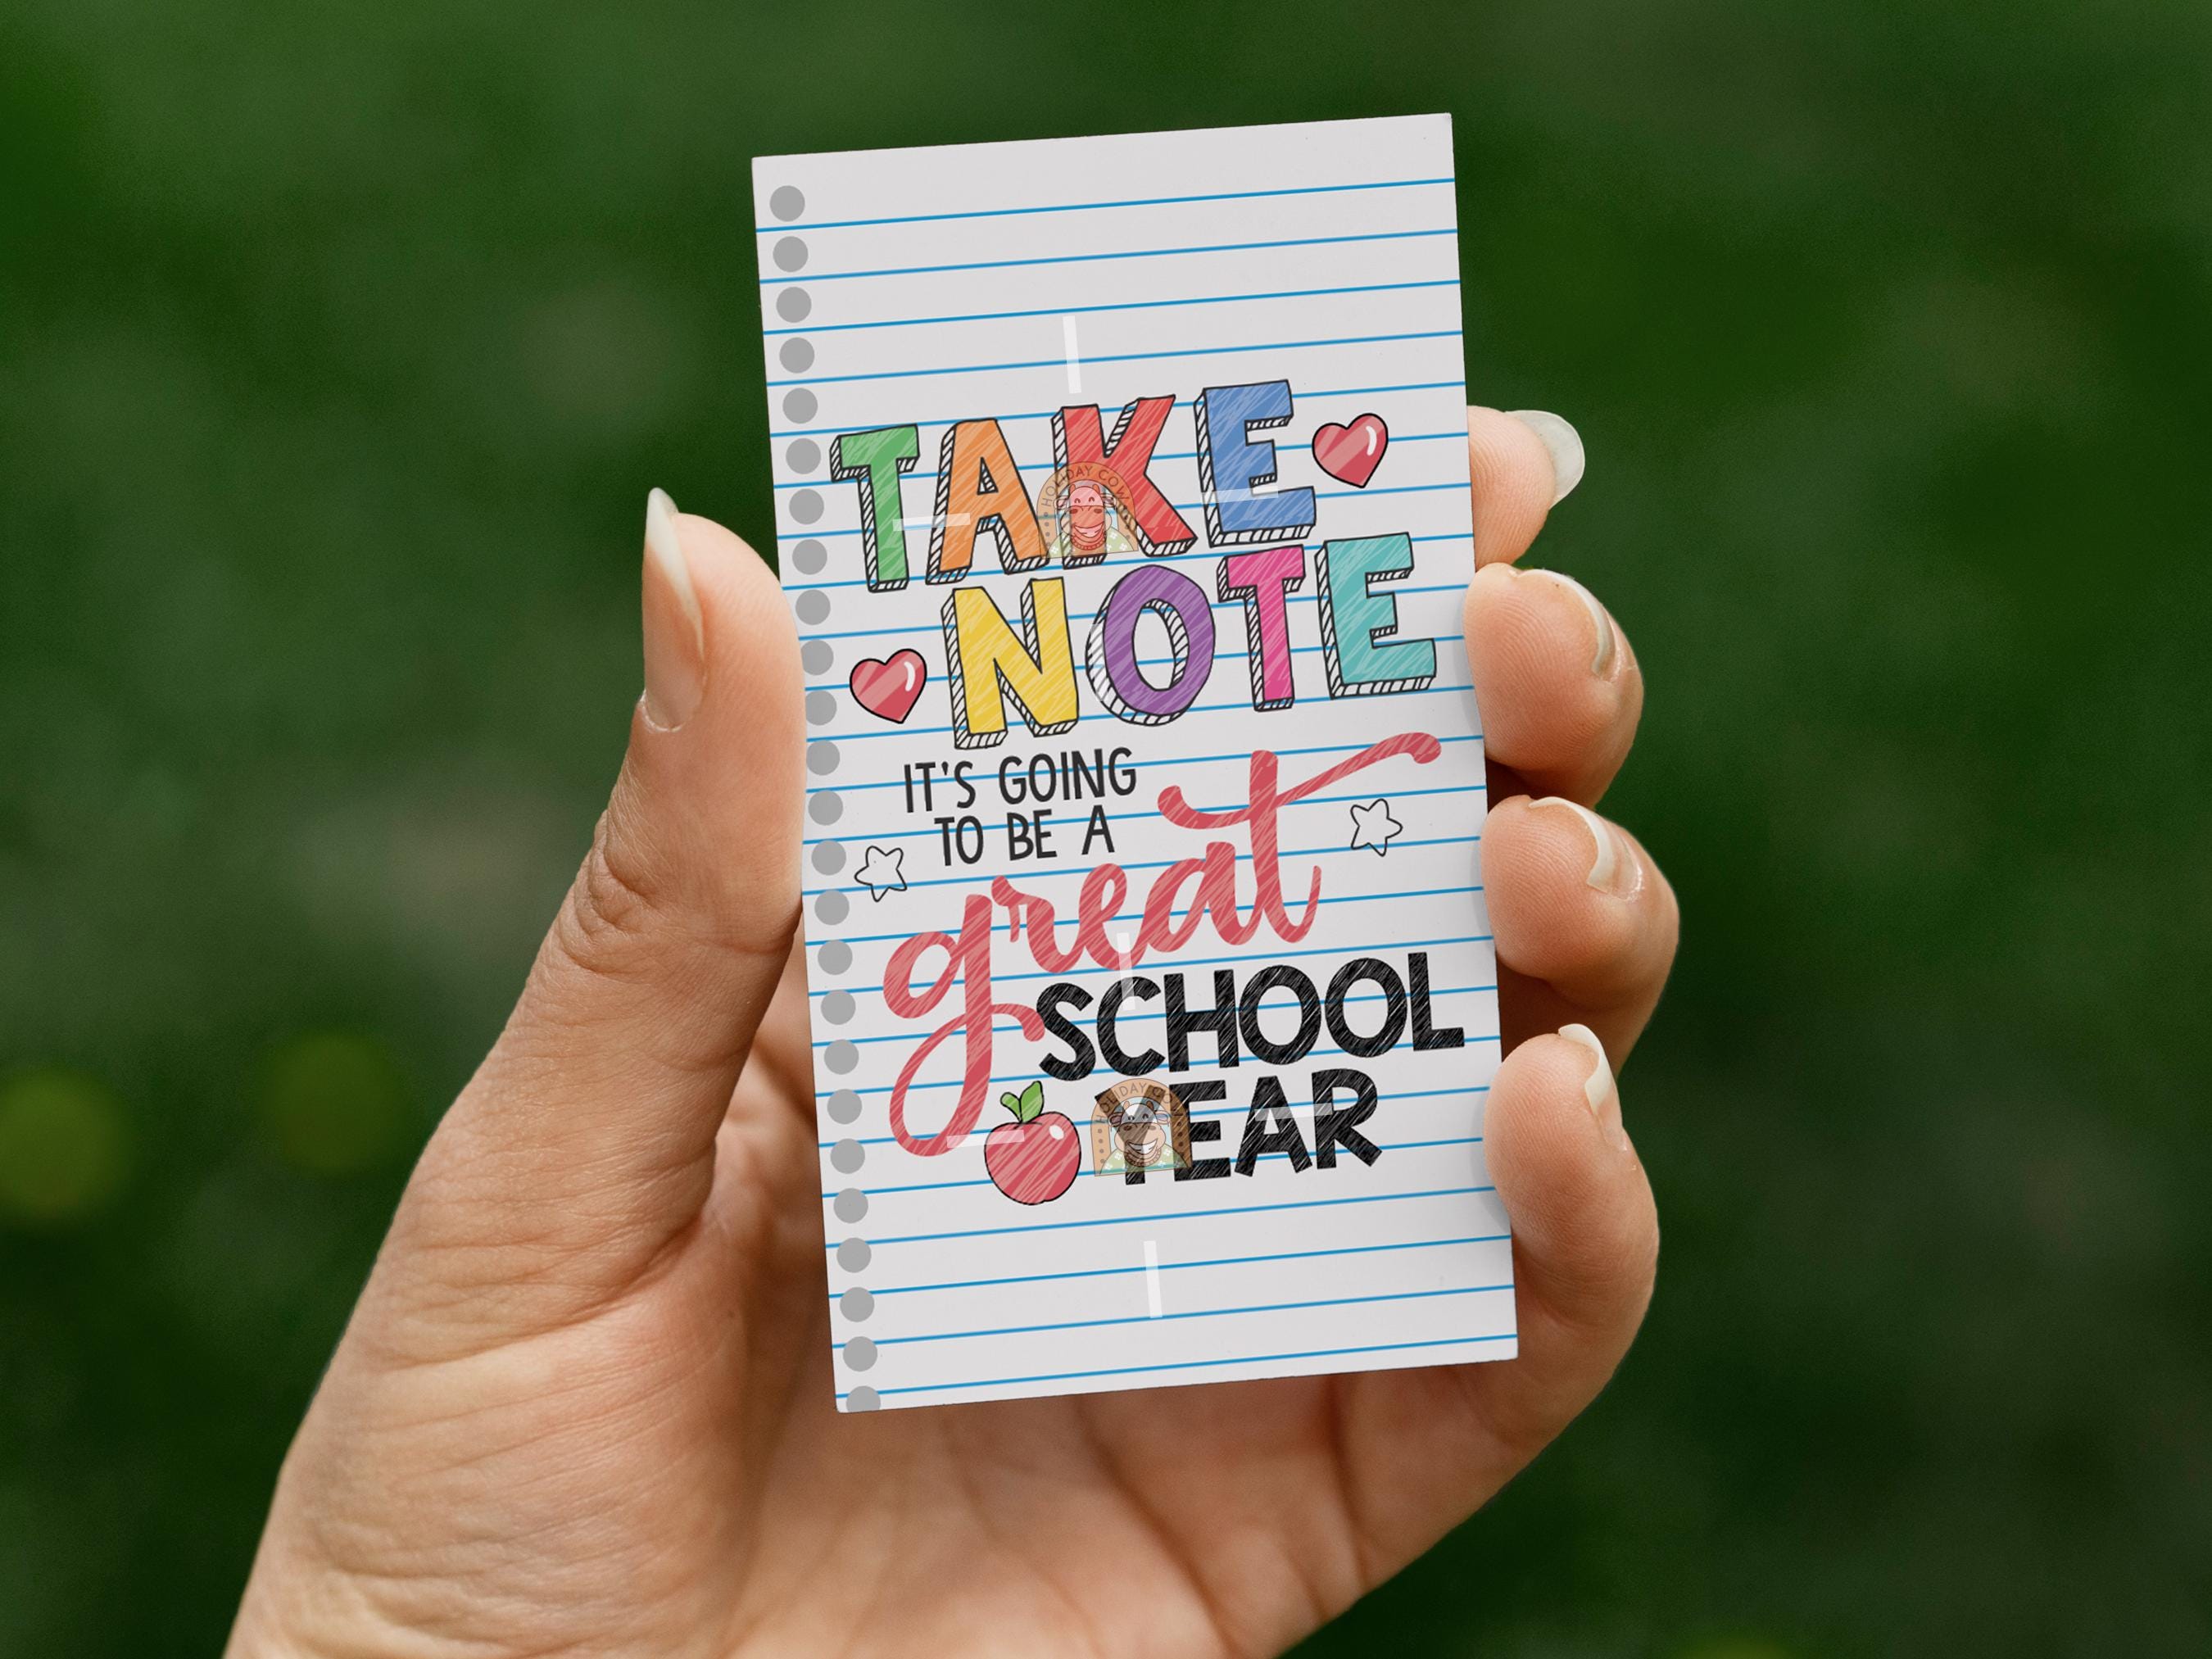 TAKE
NOTE
IT'S GOING
TO BE A
great
SCHOOL
YEAR
HOLIDAY COW
HOLIDAY COW